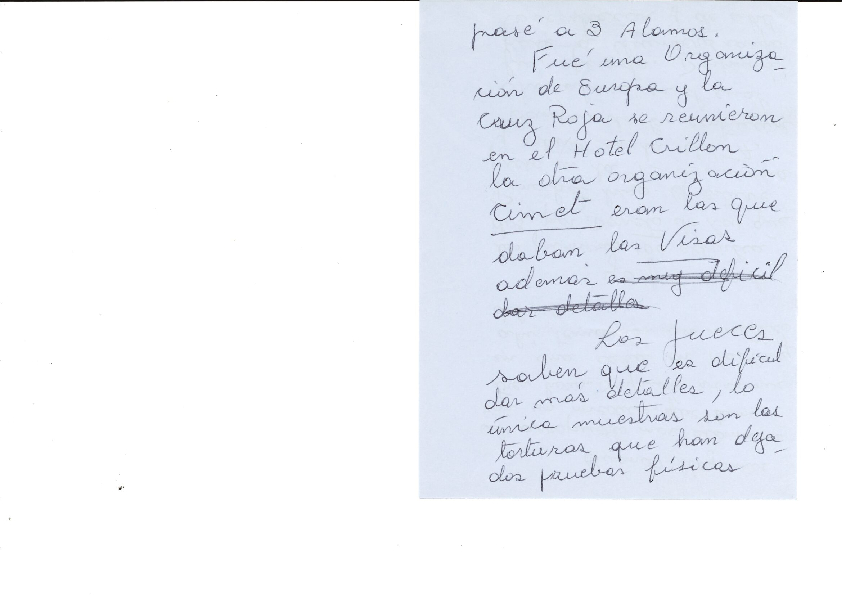 pasé a 3 Alamos.
Fué una Organiza-
ción de Europa y la
Cruz Roja se reunieron
en el Hotel Crillon
la otra organización
Cimet eran las que
daban las Visas
ademas es muy deficil
dar detalles
Los jueces
saben que es dificil
dar más detalles, lo
única muestras son las
torturas que han deja-
dos pruebas físicas